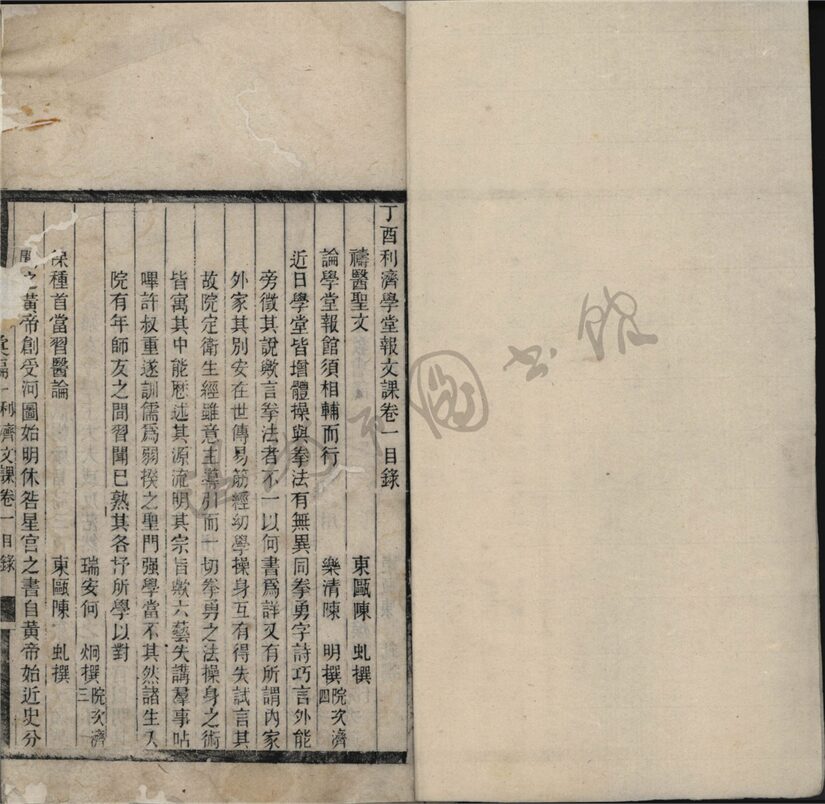 丁酉利濟學堂報文課卷一目錄
禱醫聖文 東甌陳 虬撰
論學堂報館須相輔而行 樂清陳 明撰 院次濟四
近日學堂皆增體操與拳法有無異同拳勇字詩巧言外能
旁徵其說歟言拳法者不一以何書為詳又有所謂內家
外家其別安在世傳易筋經幼學操身互有得失試言其
故院定衛生經雖意主導引而一切拳勇之法操身之術
皆寓其中能歷述其源流明其宗旨歟六藝失講羣事呫
嗶許叔重遂訓儒為弱揆之聖門强學當不其然諸生入
院有年師友之間習聞已熟其各抒所學以對
瑞安何 炯撰 院次濟三
保種首當習醫論 東甌陳 虬撰
聞之黃帝創受河圖始明休咎星官之書自黃帝始近史分
利濟文課卷一目錄